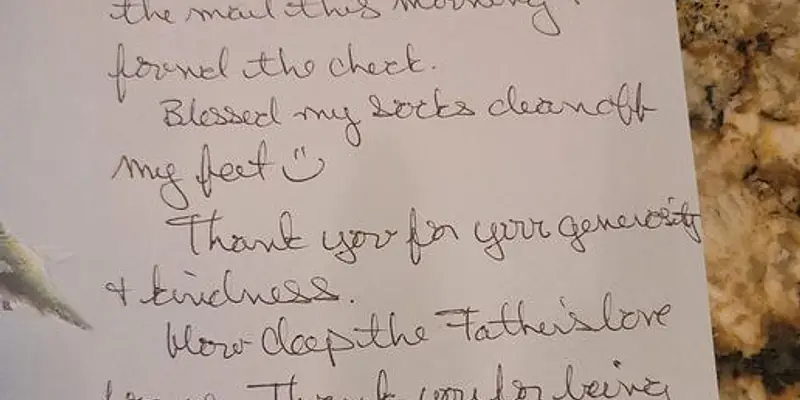 the mail this morning &
found the check.
Blessed my socks clean off
my feet
Thank you for your generosity
& kindness.
How deep the Father's love
for us. Thank you for being